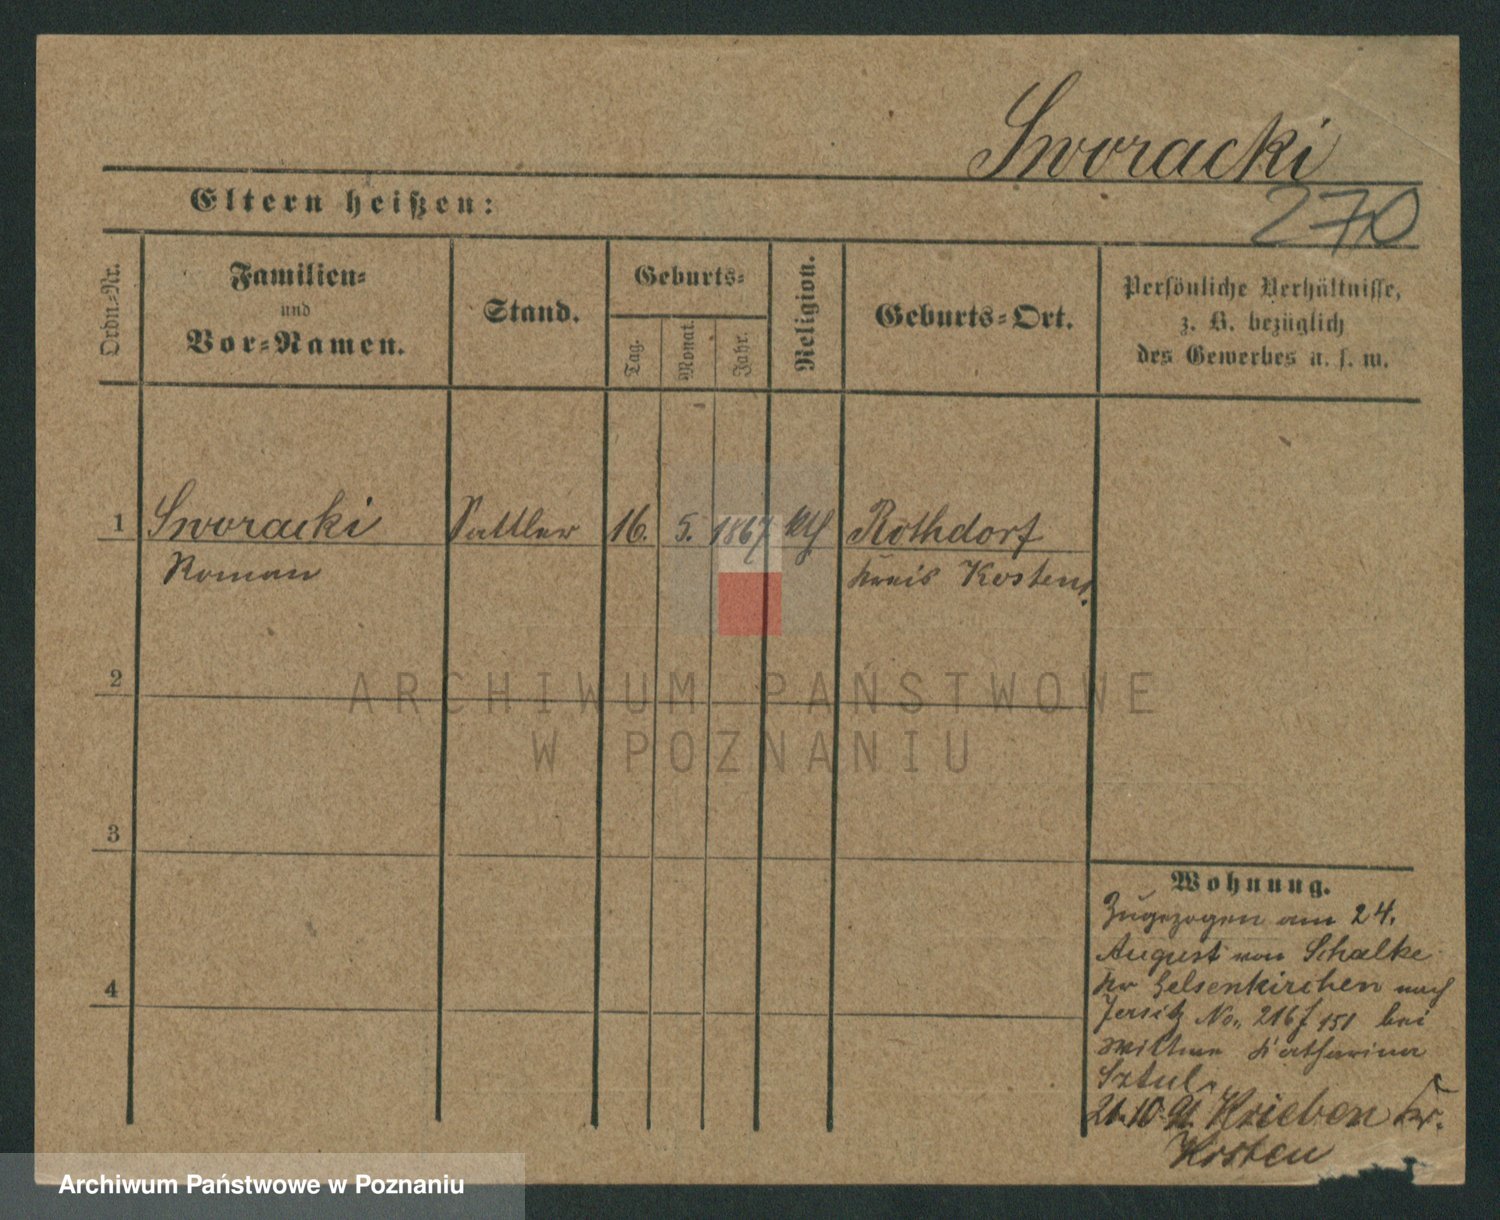 Sworacki
270
Eltern heißen:
Ordn.-Nr.
Familien-
und
Vor-Namen.
Stand.
Geburts-
Tag.
Monat.
Jahr.
Religion.
Geburts-Ort.
Persönliche Verhältnisse,
z. B. bezüglich
des Gewerbes u. s. w.
1 Sworacki Sattler 16. 5. 1867 kth Rothdorf
Roman Kreis Kosten.
2
3
4
Wohnung.
Zugezogen am 24.
August von Schalke
Kr Gelsenkirchen nach
Jersitz No. 216f 151 bei
Wittwe Katharina
Sztul.
21.10.91. Krieben Kr.
Kosten
ARCHIWUM PAŃSTWOWE
W POZNANIU
Archiwum Państwowe w Poznaniu